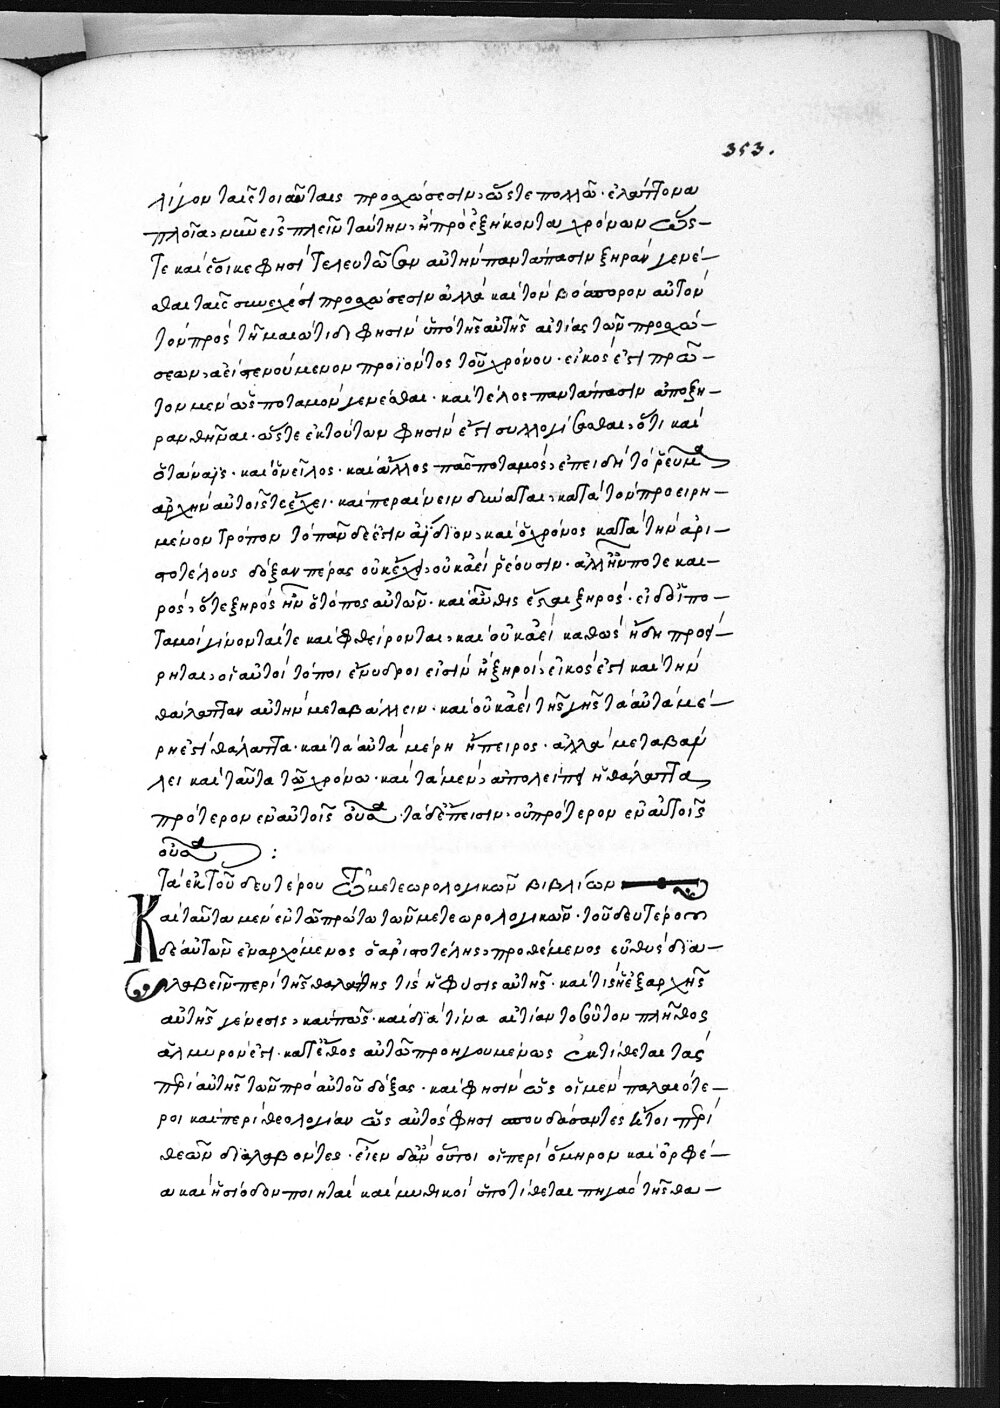 353.
λίμνην ταῖς τοιαύταις προσχώσεσιν, ὥστε πολλῶ ἐλάττονα
πλοῖα, νῦν εἰσπλεῖν ταύτην, ἢ πρὸ ἑξήκοντα χρόνων ὥσ–
τε καὶ ἔοικε φησὶ τελευτῶσαν αὐτὴν παντάπασιν ξηρὰν γενέ–
σθαι ταῖς συνεχέσι προσχώσεσιν ἀλλὰ καὶ τὸν βόσπορον αὐτὸν
τὸν πρὸς τῇ μαιώτιδι φησὶν ὑπὸ τῆς αὐτῆς αἰτίας τῶν προσχώ–
σεων, ἀεὶ στενούμενον προϊόντος τοῦ χρόνου· εἰκός ἐστι πρῶ–
τον μὲν ὡς ποταμὸν γενέσθαι· καὶ τέλος παντάπασιν ἀποξη–
ρανθῆναι· ὥστε ἐκ τούτων φησὶν ἔστι συλλογίσασθαι, ὅτι καὶ
ὁ τάναϊς· καὶ ὁ νεῖλος· καὶ ἄλλος πᾶς ποταμός, ἐπειδὴ τὸ ῥεῦμα
ἀρχὴν αὐτοῖς τε ἔχει· καὶ περαίνειν δύναται, κατὰ τὸν προειρη–
μένον τρόπον τὸ πᾶν δέ ἐστιν ἀΐδιον, καὶ ὁ χρόνος κατὰ τὴν ἀρι–
στοτέλους δόξαν πέρας οὐκ ἔχει, οὐκ ἀεὶ ῥέουσιν· ἀλλ' ἦν ποτε και–
ρός, ὅτε ξηρὸς ἦν ὁ τόπος αὐτῶν· καὶ αὖθις ἔσται ξηρός· εἰ δὲ οἱ πο–
ταμοὶ γίνονταί τε καὶ φθείρονται, καὶ οὐκ ἀεὶ καθὼς ἤδη προεί–
ρηται, οἱ αὐτοὶ τόποι ἔνυδροι εἰσὶν ἢ ξηροί, εἰκός ἐστι καὶ τὴν
θάλατταν αὐτὴν μεταβάλλειν· καὶ οὐκ ἀεὶ τῆς γῆς τὰ αὐτὰ μέ–
ρη ἐστὶ θάλαττα· καὶ τὰ αὐτὰ μέρη ἤπειρος· ἀλλὰ μεταβάλ
λει καὶ ταῦτα τῶ χρόνω· καὶ τὰ μὲν, ἀπολείπει ἡ θάλαττα
πρότερον ἐν αὐτοῖς οὖσα· τὰ δὲ ἔπεισιν, οὐ πρότερον ἐν αὐτοῖς
οὖσα :
Τὰ ἐκ τοῦ δευτέρου τῶν μετεωρολογικῶν βιβλίων
Καὶ ταῦτα μὲν ἐν τῶ πρώτω τῶν μετεωρολογικῶν· τοῦ δευτέρου
δὲ αὐτῶν ἐναρχόμενος ὁ ἀριστοτέλης, προθέμενος εὐθὺς δια–
λαβεῖν περὶ τῆς θαλάττης τίς ἡ φύσις αὐτῆς· καὶ τίς ἡ ἐξ ἀρχῆς
αὐτῆς γένεσις, καὶ πῶς· καὶ διὰ τίνα αἰτίαν τοσοῦτον πλῆθος
ἁλμυρόν ἐστι· κατ' ἔθος αὐτῶ προηγουμένως ἐκτίθεται τὰς
περὶ αὐτῆς τῶν πρὸ αὐτοῦ δόξας· καὶ φησὶν ὡς οἱ μὲν παλαιότε–
ροι καὶ περὶ θεολογίαν ὡς αὐτός φησι σπουδάσαντες ἤτοι περὶ
θεῶν διαλαβόντες· εἶεν δ' ἂν οὗτοι οἱ περὶ ὅμηρον καὶ ὀρφέ–
α καὶ ἡσίοδον ποιηταὶ καὶ μυθικοὶ ὑποτίθεται πηγὰς τῆς θα–